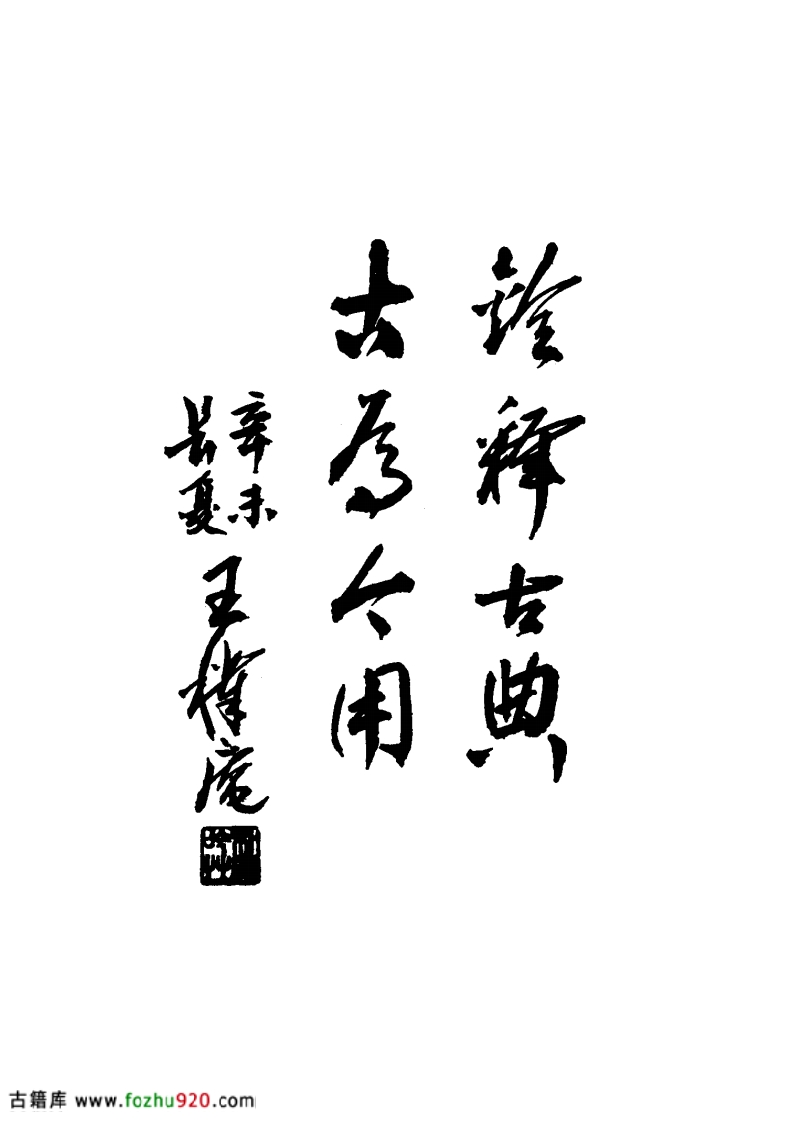 詮释古典
古为今用
辛未
长夏
王樸庵
古籍库 www.fozhu920.com